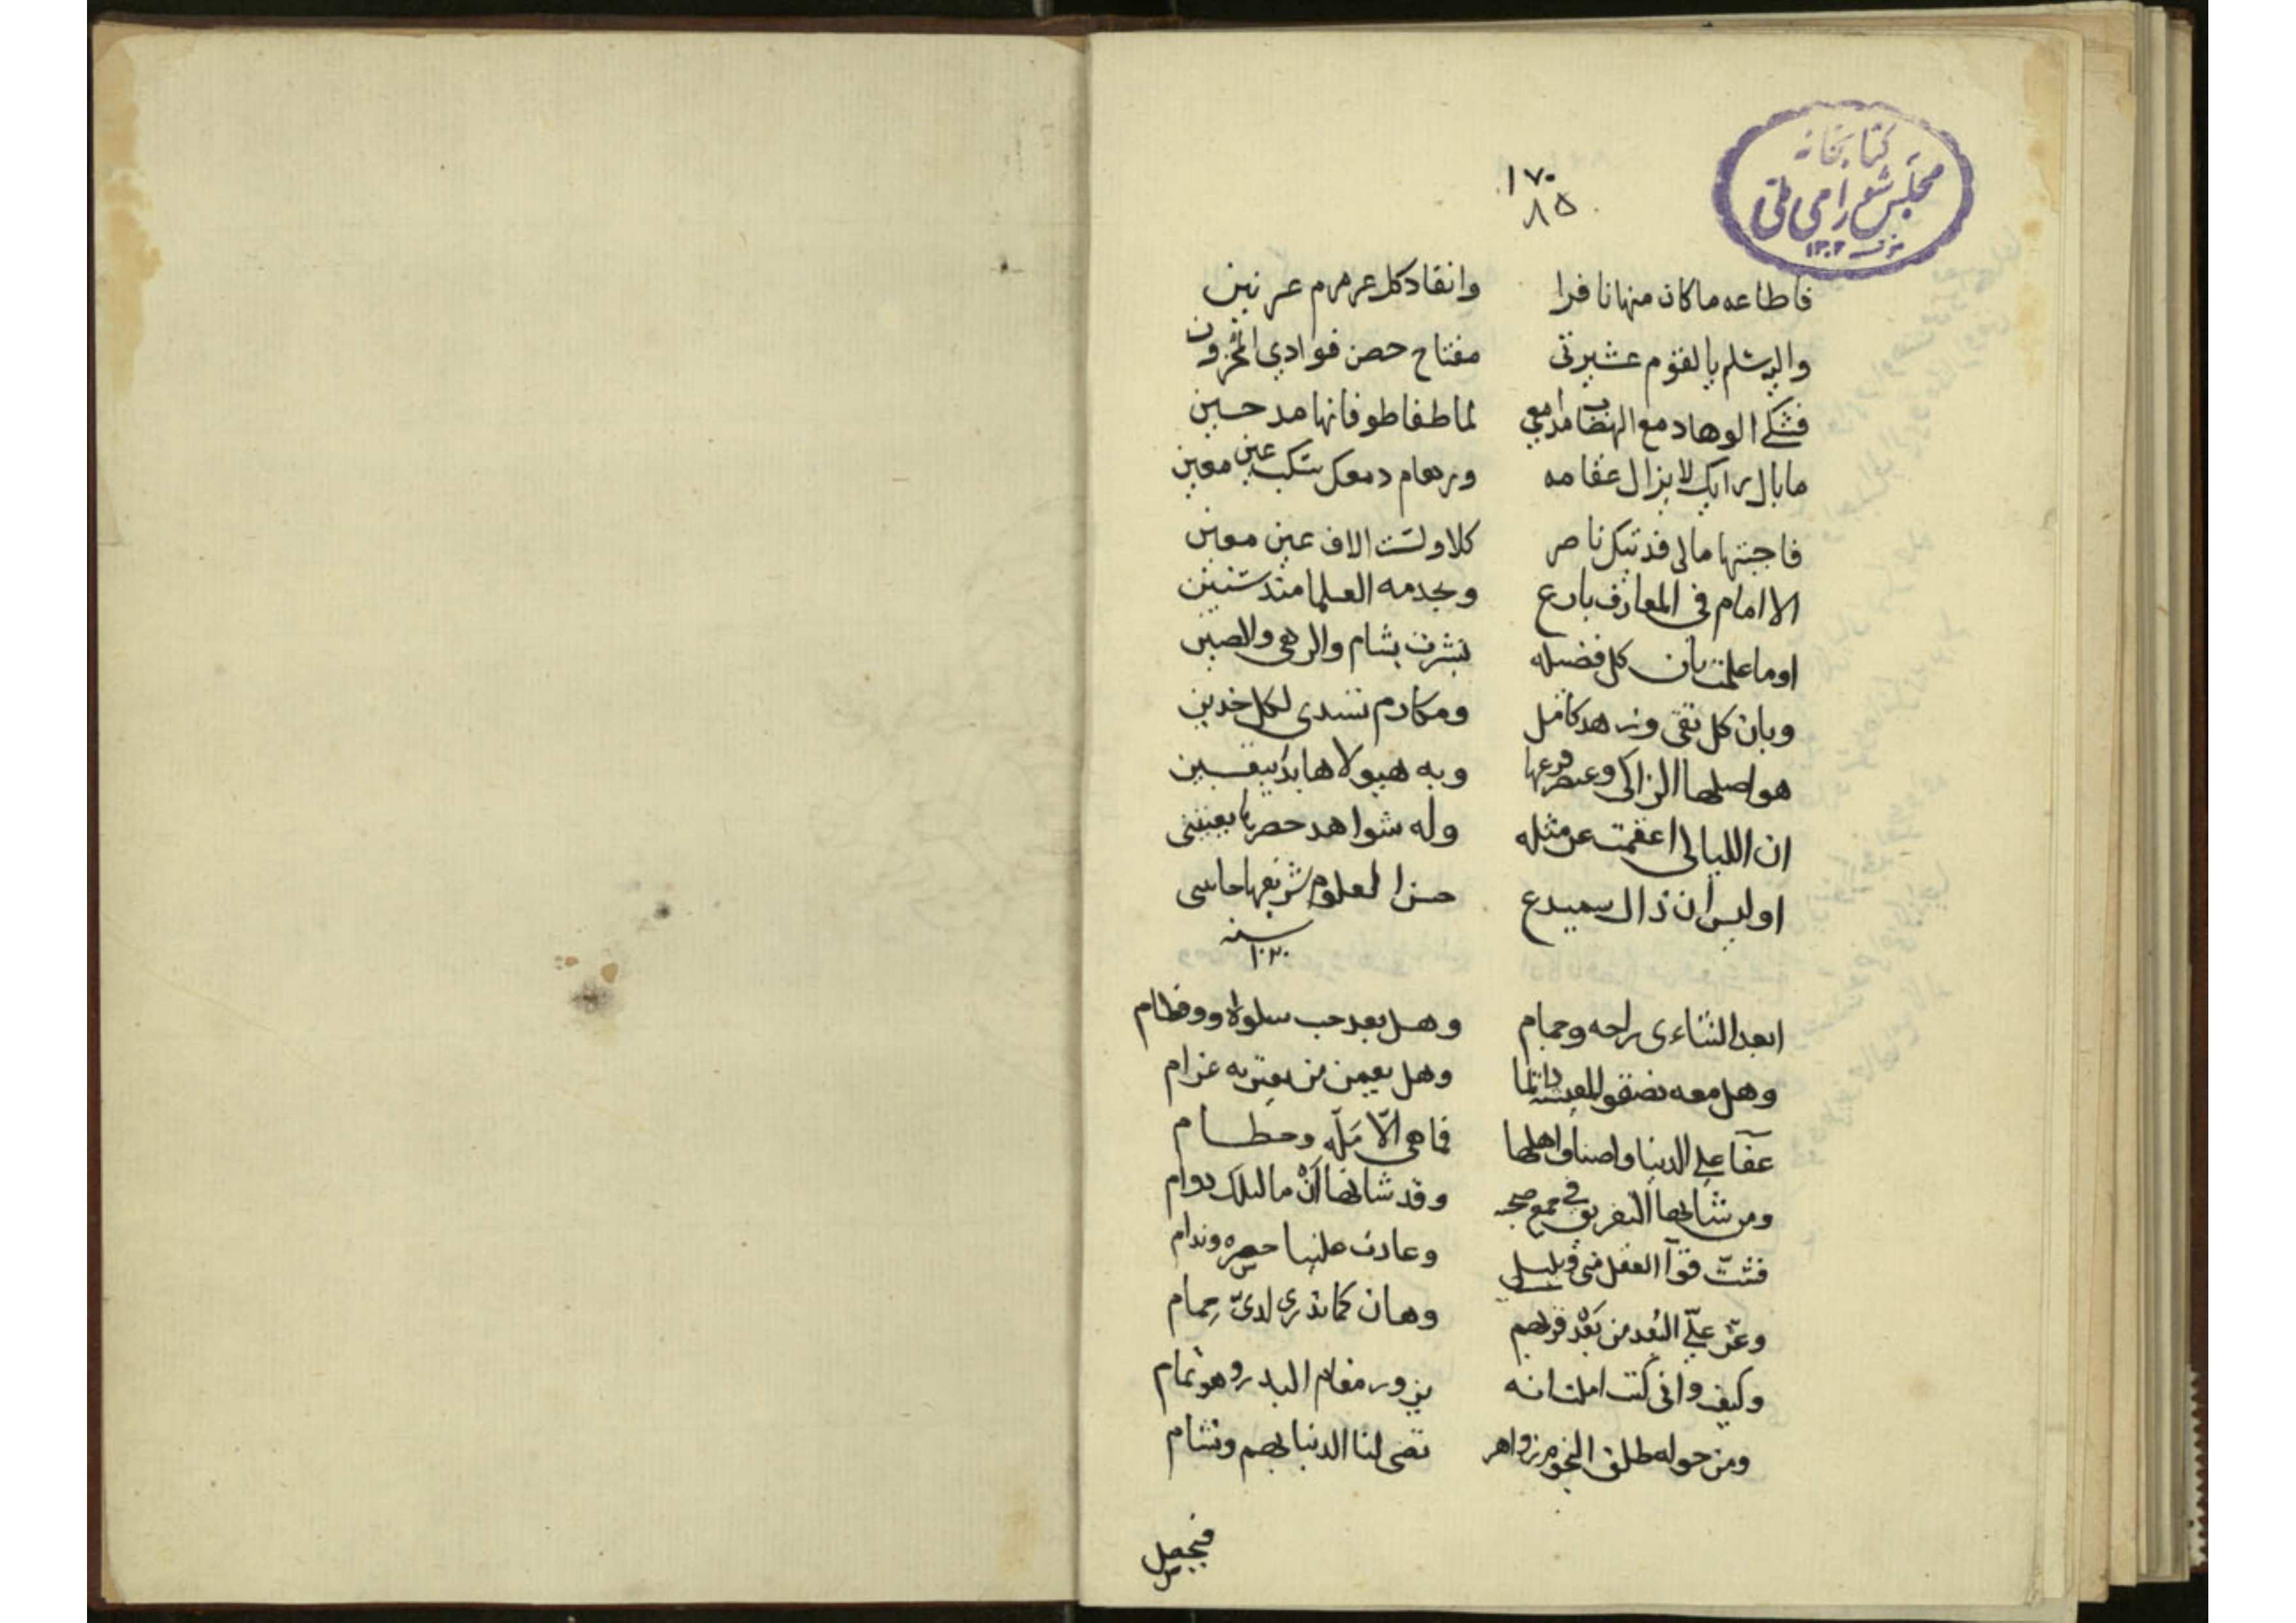 كتابخانه
مجلس شورای ملی
۱۳۰۲
۱۷۰
۸۵
فاطاعه ماكان منها نافرا وانقاد كل عرمرم عرنين
والبر سلم يالقوم عشيرتى مفتاح حصن فوادي المخزون
فشكى الوهاد مع الهضاب مدامعي لما طفا طوفانها مد حسين
مابال رايك لا يزال عقامه وبرهام دمعك سكب عين معين
فاجبتها مالى فديتك ناصر كلا ولست الاف عين معين
الا امام فى المعارف بارع وبخدمه العلما منذ سنين
اوما علمت بان كل فضيله نشرت بشام والرهى والصين
وبان كل تقى وزهد كامل ومكارم تسدى لكل خدين
هو اصلها الزاكى وعنصر فرعها وبه هيولاها بدا بيقين
ان الليالى اعقمت عن مثله وله شواهد حصرها يعيينى
اوليس ان ذا السميدع حسن العلوم شريفها حاسى
سنه ۱۰۲۰
ابعد التناءى راحه وجمام وهل بعد حب سلوة ووفطام
وهل معه تصفو المعيشه دائما وهل يعمن من يعتريه غرام
عفا على الدنيا واصناف اهلها فما هى الّا ملّه وحطام
ومن شانها التفريق فى جمع صحبه وقد شانها ان مالتلك دوام
فشتّ قوا العقل منى قليل وعادت علينا حسره وندام
وعز علىّ البُعد من بَعْد قربهم وهان كما تدرى لدىّ حِمام
وكيف وانى كنت املت انه يزور مقام البدر وهو تمام
ومن حوله طلق النجوم زواهر تضى لنا الدنيا بهم وتشام
فيجعل